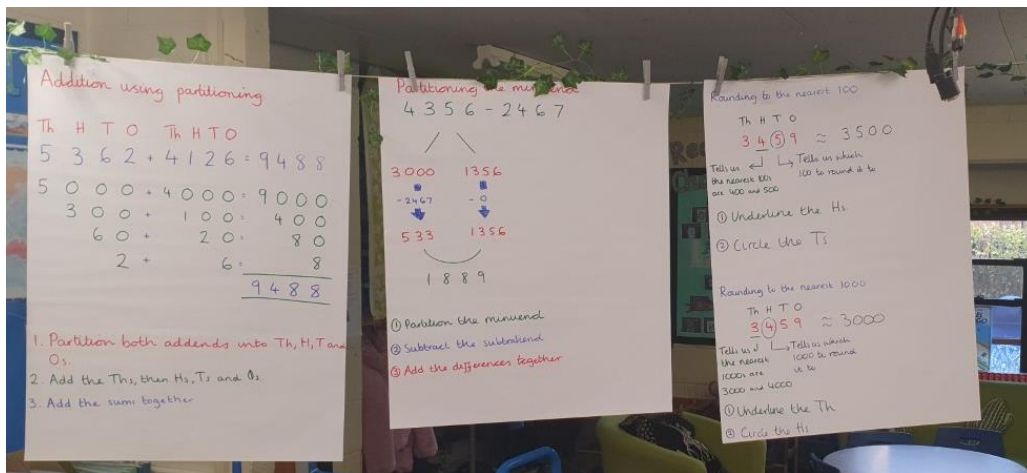 Addition using partitioning
Th H T O Th H T O
5 3 6 2 + 4 1 2 6 = 9 4 8 8
5 0 0 0 + 4 0 0 0 = 9 0 0 0
3 0 0 + 1 0 0 = 4 0 0
6 0 + 2 0 = 8 0
2 + 6 = 8
9 4 8 8
1. Partition both addends into Th, H, T and
Os.
2. Add the Ths, then Hs, Ts and Os.
3. Add the sums together
Partitioning the minuend
4 3 5 6 - 2 4 6 7
3000 1356
-2467 -0
533 1356
1 8 8 9
① Partition the minuend
② Subtract the subtrahend
③ Add the differences together
Rounding to the nearest 100
Th H T O
3 4 5 9 ≈ 3500
Tells us
the nearest 100s
are 400 and 500
Tells us which
100 to round it to
① Underline the Hs
② Circle the Ts
Rounding to the nearest 1000
Th H T O
3 4 5 9 ≈ 3000
Tells us
the nearest
1000s are
3000 and 4000
Tells us which
1000 to round
it to
① Underline the Th
② Circle the Hs